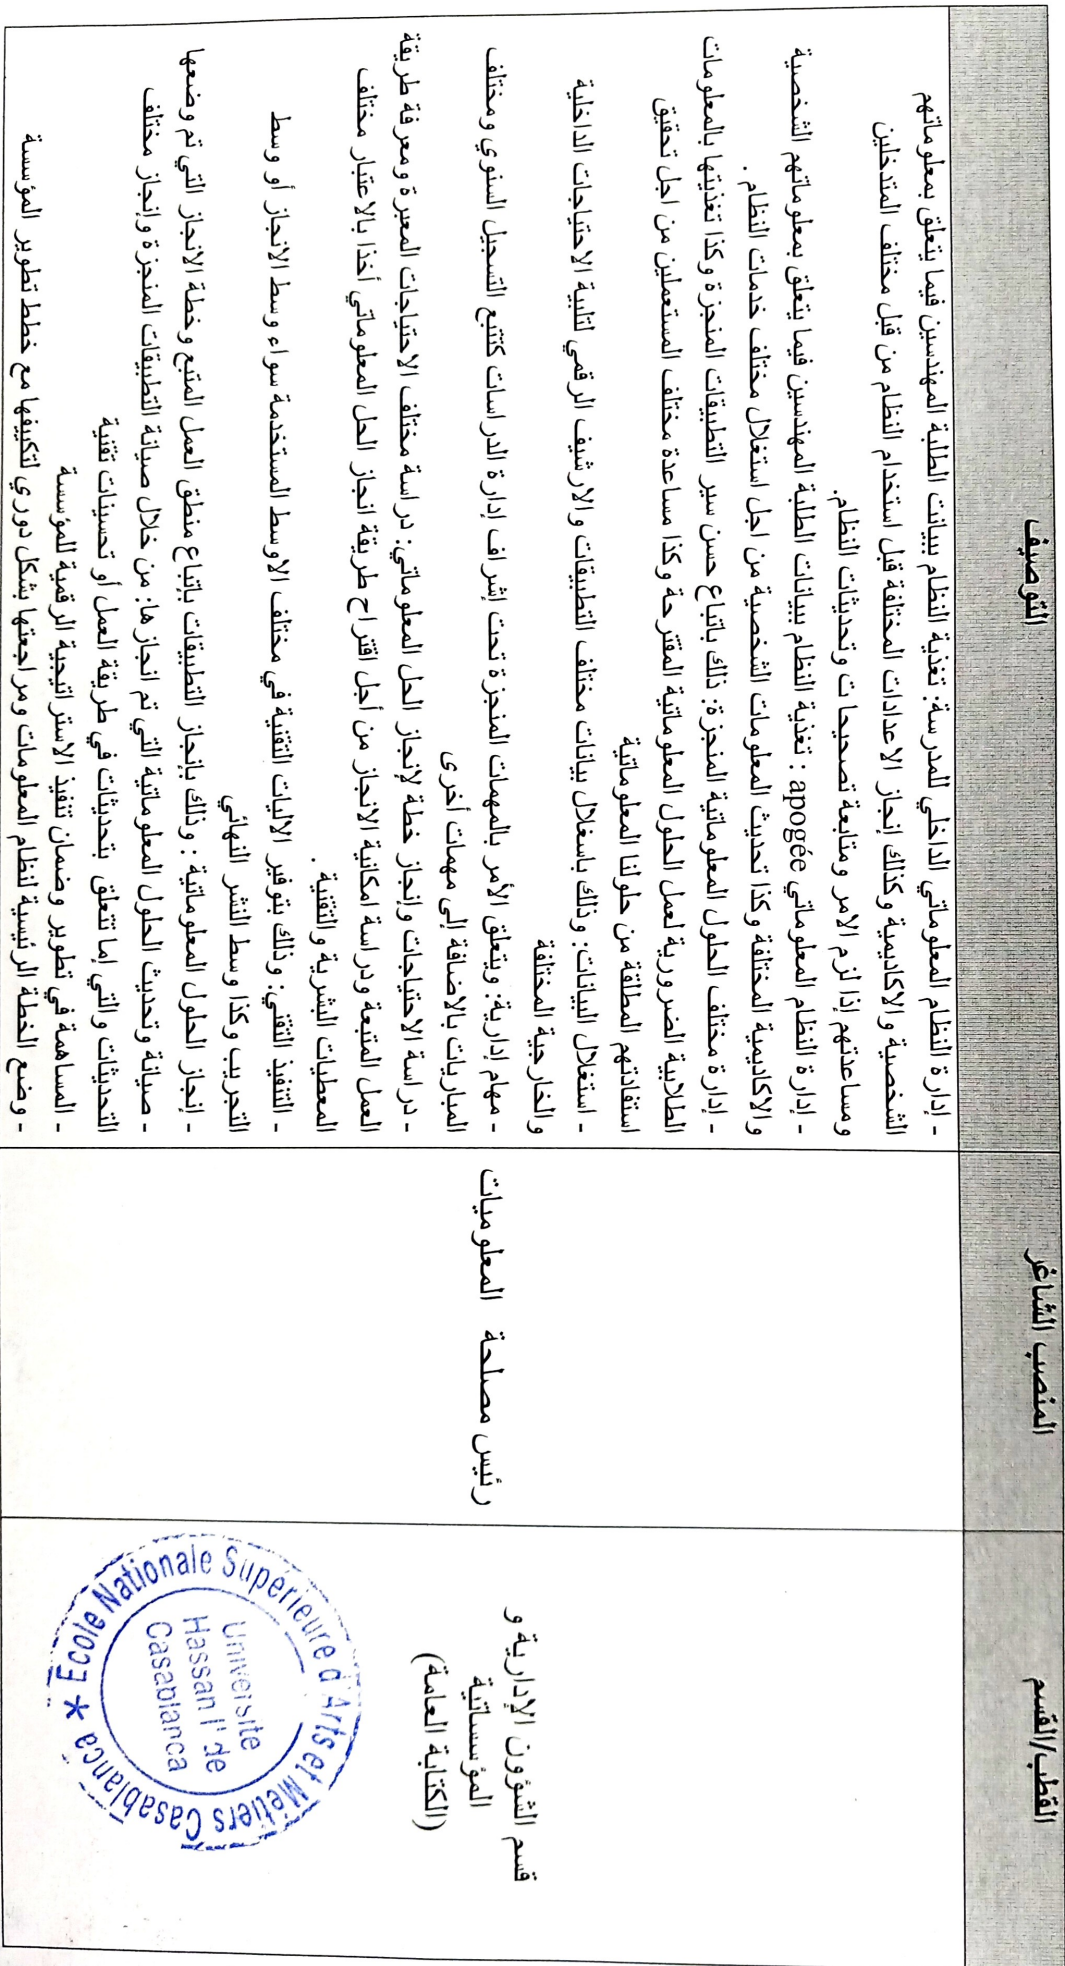 القطب/القسم
المنصب الشاغر
التوصيف
قسم الشؤون الإدارية و
المؤسساتية
(الكتابة العامة)
رئيس مصلحة المعلوميات
- إدارة النظام المعلوماتي الداخلي للمدرسة: تغذية النظام ببيانت الطلبة المهندسين فيما يتعلق بمعلوماتهم
الشخصية والاكاديمية وكذلك إنجاز الاعدادات المختلفة قبل استخدام النظام من قبل مختلف المتدخلين
ومساعدتهم إذا لزم الامر ومتابعة تصحيحا ت وتحديثات النظام.
- إدارة النظام المعلوماتي apogée : تغذية النظام ببيانات الطلبة المهندسين فيما يتعلق بمعلوماتهم الشخصية
والاكاديمية المختلفة وكذا تحديث المعلومات الشخصية من اجل استغلال مختلف خدمات النظام .
- إدارة مختلف الحلول المعلوماتية المنجزة: ذلك باتباع حسن سير التطبيقات المنجزة وكذا تغذيتها بالمعلومات
الطلابية الضرورية لعمل الحلول المعلوماتية المقترحة وكذا مساعدة مختلف المستعملين من اجل تحقيق
استفادتهم المطلقة من حلولنا المعلوماتية
- استغلال البيانات: وذلك باسغلال بيانات مختلف التطبيقات والارشيف الرقمي لتلبية الاحتياجات الداخلية
والخارجية المختلفة
- مهام إدارية: ويتعلق الأمر بالمهمات المنجزة تحت إشراف إدارة الدراسات كتتبع التسجيل السنوي ومختلف
المباريات بالاضافة إلى مهمات أخرى
- دراسة الاحتياجات وإنجاز خطة لإنجاز الحل المعلوماتي: دراسة مختلف الاحتياجات المعبرة ومعرفة طريقة
العمل المتبعة ودراسة امكانية الانجاز من أجل اقتراح طريقة انجاز الحل المعلوماتي أخذا بالاعتبار مختلف
المعطيات البشرية والتقنية .
- التنفيذ التقني: وذلك بتوفير الاليات التقنية في مختلف الاوسط المستخدمة سواء وسط الانجاز أو وسط
التجريب وكذا وسط النشر النهائي
- إنجاز الحلول المعلوماتية : وذلك بإنجاز التطبيقات بإتباع منطق العمل المتبع وخطة الانجاز التي تم وضعها
- صيانة وتحديث الحلول المعلوماتية التي تم انجازها: من خلال صيانة التطبيقات المنجزة وإنجاز مختلف
التحديثات والتي إما تتعلق بتحديثات في طريقة العمل أو تحسينات تقنية
- المساهمة في تطوير وضمان تنفيذ الاستراتيجية الرقمية للمؤسسة
- وضع الخطة الرئيسية لنظام المعلومات ومراجعتها بشكل دوري لتكييفها مع خطط تطوير المؤسسة
Ecole Nationale Supérieure d'Arts et Métiers Casablanca *
Université
Hassan I' de
Casablanca